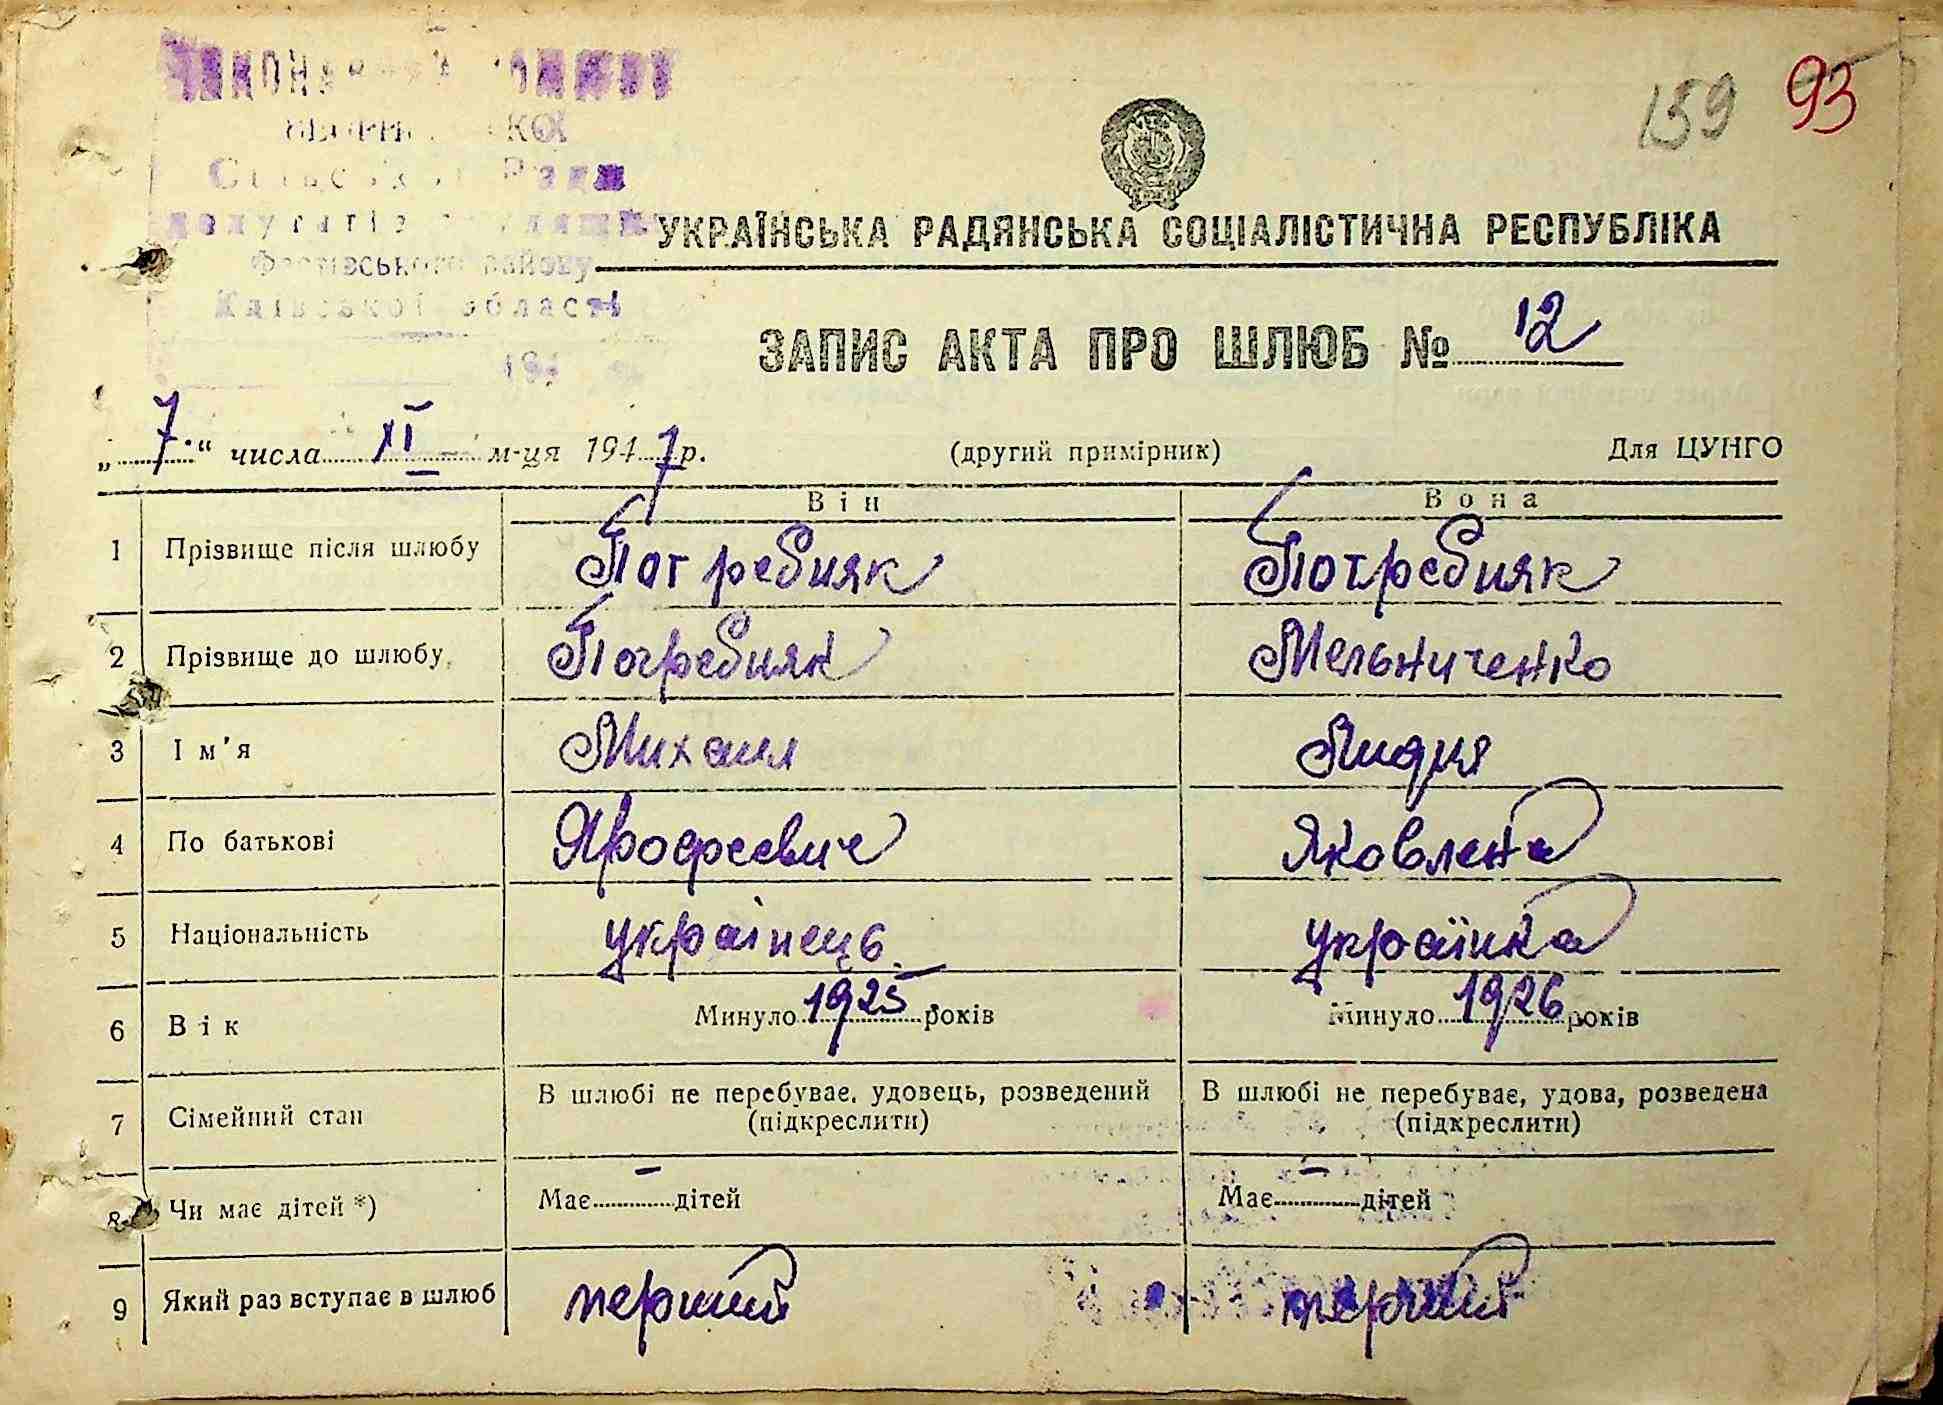 159 93
Сільської Ради
депутатів
Фастівського району
Київської області
194
УКРАЇНСЬКА РАДЯНСЬКА СОЦІАЛІСТИЧНА РЕСПУБЛІКА
ЗАПИС АКТА ПРО ШЛЮБ № 12
„7“ числа XI м-ця 1947 р. (другий примірник) Для ЦУНГО
Він Вона
1 Прізвище після шлюбу Погребняк Погребняк
2 Прізвище до шлюбу Погребняк Мельниченко
3 Ім'я Михаил Лидия
4 По батькові Ярофеевич Яковлена
5 Національність українець українка
6 Вік Минуло 1925 років Минуло 1926 років
7 Сімейний стан В шлюбі не перебуває, удовець, розведений В шлюбі не перебуває, удова, розведена
(підкреслити) (підкреслити)
8 Чи має дітей *) Має - дітей Має - дітей
9 Який раз вступає в шлюб перший перший